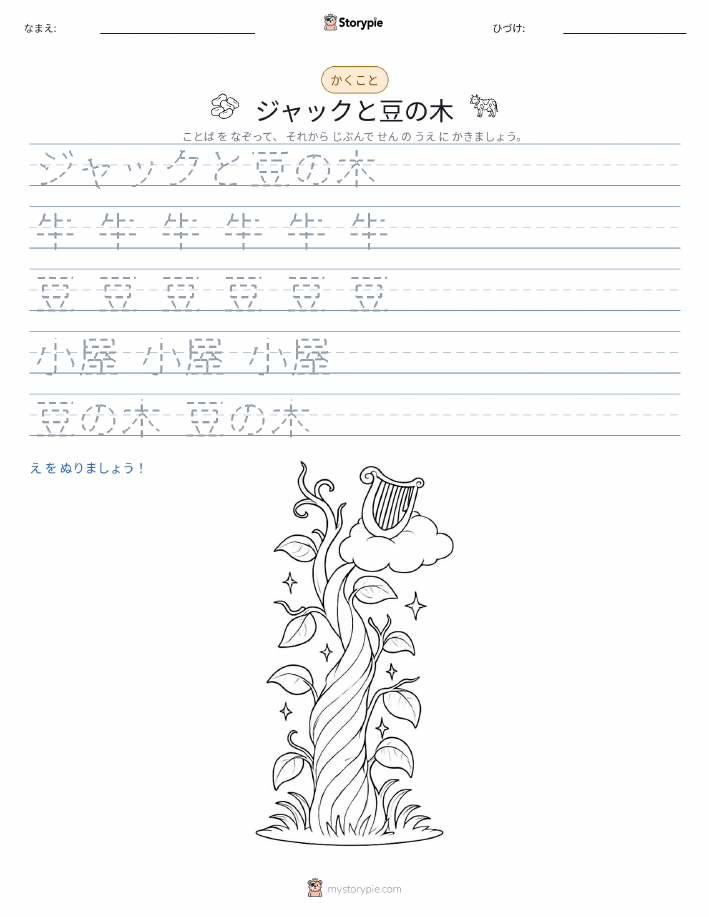 なまえ:
Storypie
ひづけ:
かくこと
ジャックと豆の木
ことば を なぞって、 それから じぶんで せん の うえ に かきましょう。
ジャックと豆の木
牛 牛 牛 牛 牛 牛
豆 豆 豆 豆 豆 豆
小屋 小屋 小屋
豆の木 豆の木
え を ぬりましょう！
mystorypie.com